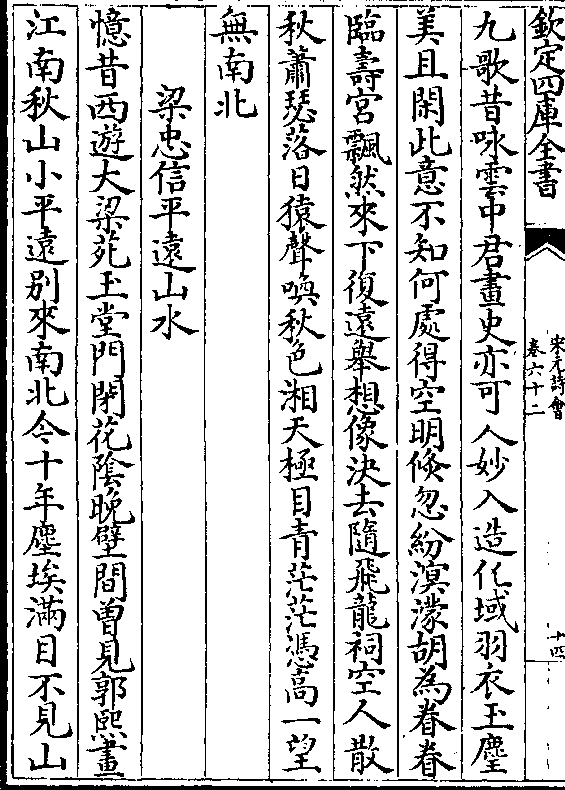 欽定四庫全書
宋元詩會
卷六十二
十四
九歌昔咏雲中君畫史亦可人妙入造化域羽衣玉麈
美且閑此意不知何處得空明倐忽紛溟濛胡為眷眷
臨壽宮飄然來下復遠舉想像決去隨飛龍祠空人散
秋蕭瑟落日猿聲喚秋色湘天極目青茫茫憑高一望
無南北
梁忠信平遠山水
憶昔西遊大梁苑玉堂門閉花陰晚壁間曽見郭熙畫
江南秋山小平遠别來南北今十年塵埃滿目不見山